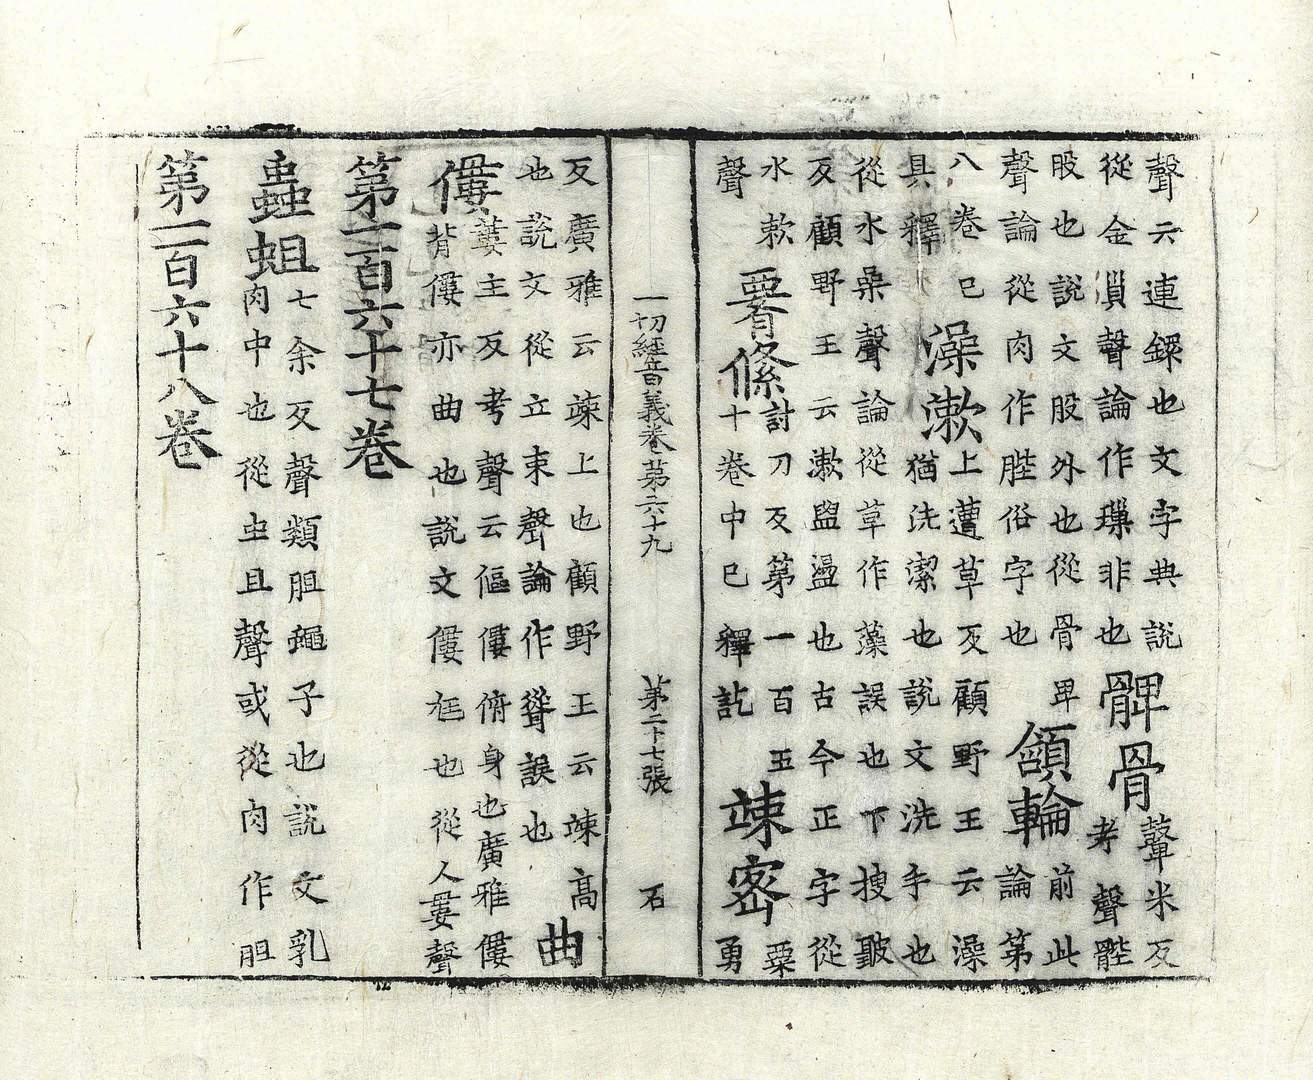 聲云連鏁也文字典說
從金𧴪聲論作璅非也
髀骨
鼙米反
考聲䏶
股也說文股外也從骨卑
聲論從肉作䏶俗字也
頷輪
前此
論第
八卷已
具釋
澡漱
上遭草反顧野王云澡
猶洗潔也說文洗手也
從水喿聲論從草作藻誤也下搜皺
反顧野王云漱盥盪也古今正字從
水欶
聲
𦝫絛
討刀反第一百五
十卷中已釋訖
竦密
粟
勇
一切經音義卷第六十九 第二十七張 石
反廣雅云竦上也顧野王云竦高
也說文從立束聲論作聳誤也
曲
僂
蔞主反考聲云傴僂俯身也廣雅僂
背僂亦曲也說文僂尪也從人婁聲
第一百六十七卷
蟲蛆
七余反聲類胆蠅子也說文乳
肉中也從虫且聲或從肉作胆
第一百六十八卷